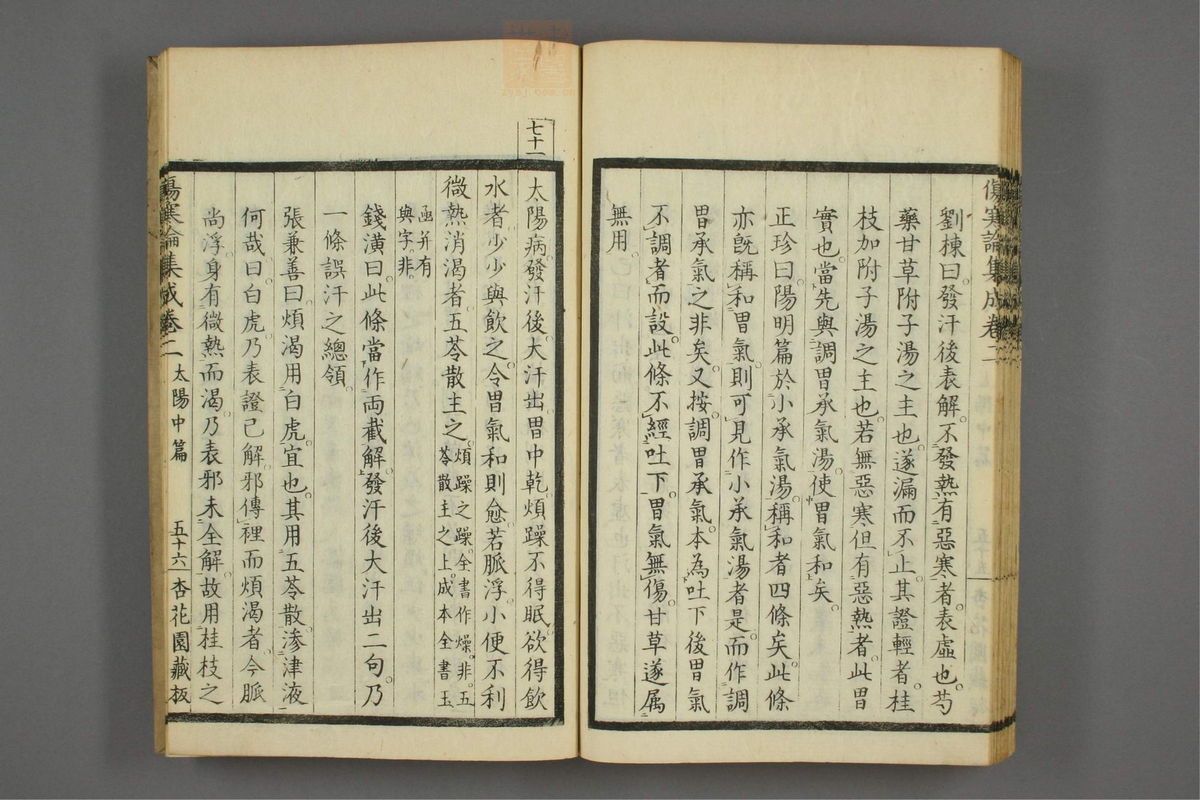 傷寒論集成卷二
劉棟曰發汗後表解不發熱有惡寒者表虛也芍
藥甘草附子湯之主也遂漏而不止其證輕者桂
枝加附子湯之主也若無惡寒但有惡熱者此胃
實也當先與調胃承氣湯使胃中氣和矣
正珍曰陽明篇於小承氣湯稱和者四條矣此條
亦既稱和胃氣則可見作小承氣湯者是而作調
胃承氣之非矣又按調胃承氣本為吐下後胃氣
不調者而設此條不經吐下胃氣無傷甘草遂属
無用
七十一
太陽病發汗後大汗出胃中乾煩躁不得眠欲得飲
水者少少與飲之令胃氣和則愈若脈浮小便不利
微熱消渴者五苓散主之煩躁之躁全書作燥非五
苓散主之上成本全書玉
函并有
與字非
錢潢曰此條當作両截解發汗後大汗出二句乃
一條誤汗之總領
張兼善曰煩渴用白虎宜也其用五苓散渗津液
何哉曰白虎乃表證已解邪傳裡而煩渴者今脈
尚浮身有微熱而渴乃表邪未全解故用桂枝之
傷寒論集成卷二 太陽中篇 五十六 杏花園藏板